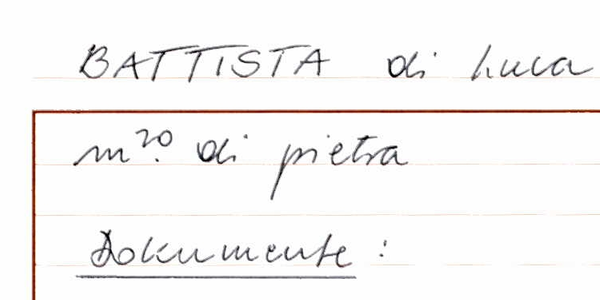 BATTISTA di Luca
m.ro di pietra
Dokumente: